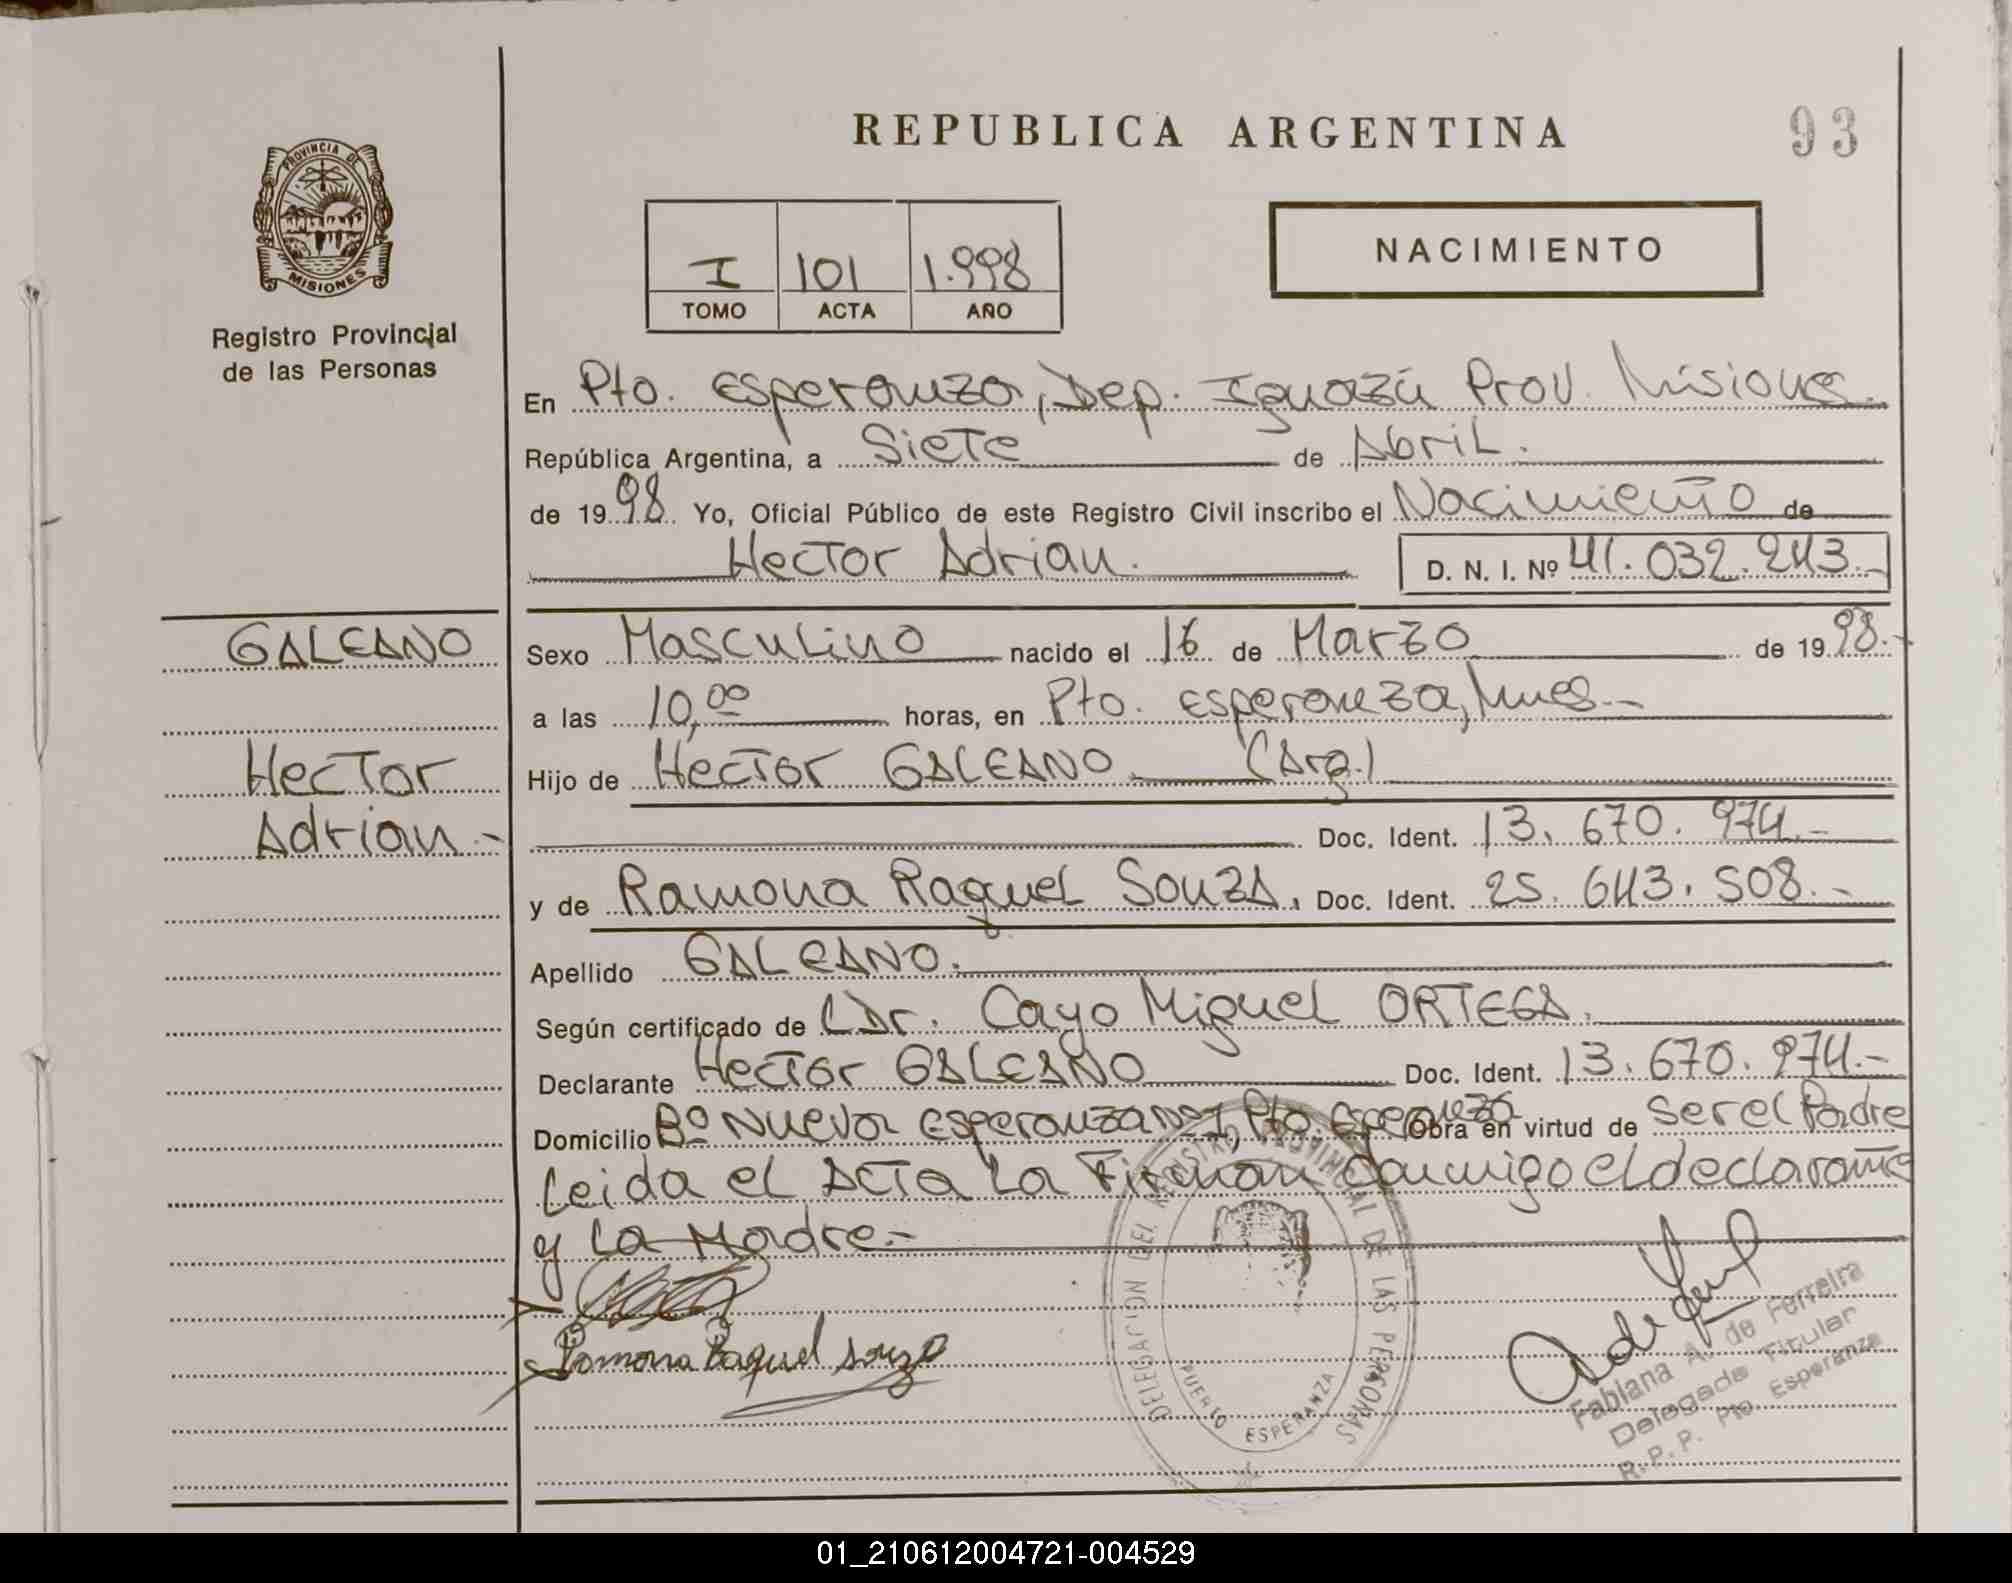 REPUBLICA ARGENTINA
93
PROVINCIA DE
MISIONES
Registro Provincial
de las Personas
I 101 1.998
TOMO ACTA AÑO
NACIMIENTO
En Pto. Esperanza, Dep. Iguazú Prov. Misiones.
República Argentina, a Siete de Abril.
de 1998 Yo, Oficial Público de este Registro Civil inscribo el Nacimiento de
Hector Adrian. D. N. I. Nº 41.032.243.-
GALEANO
Hector
Adrian.-
Sexo Masculino nacido el 16 de Marzo de 1998.-
a las 10,00 horas, en Pto. Esperanza, Mnes.-
Hijo de Hector GALEANO. (Arg.)
Doc. Ident. 13.670.974.-
y de Ramona Raquel SOUZA. Doc. Ident. 25.643.508.-
Apellido GALEANO.
Según certificado de (Dr. Cayo Miguel ORTEGA.
Declarante Hector GALEANO Doc. Ident. 13.670.974.-
Domicilio Bº Nueva Esperanza Pto Esperanza Obra en virtud de ser el Padre
Leida el Acta La Firman conmigo el declarante
y La Madre.-
Ramona Raquel Souza
DELEGACION DEL REGISTRO PROVINCIAL DE LAS PERSONAS
PUERTO ESPERANZA
Fabiana A. de Ferreira
Delegada Titular
R.P.P. Pto Esperanza
01_210612004721-004529